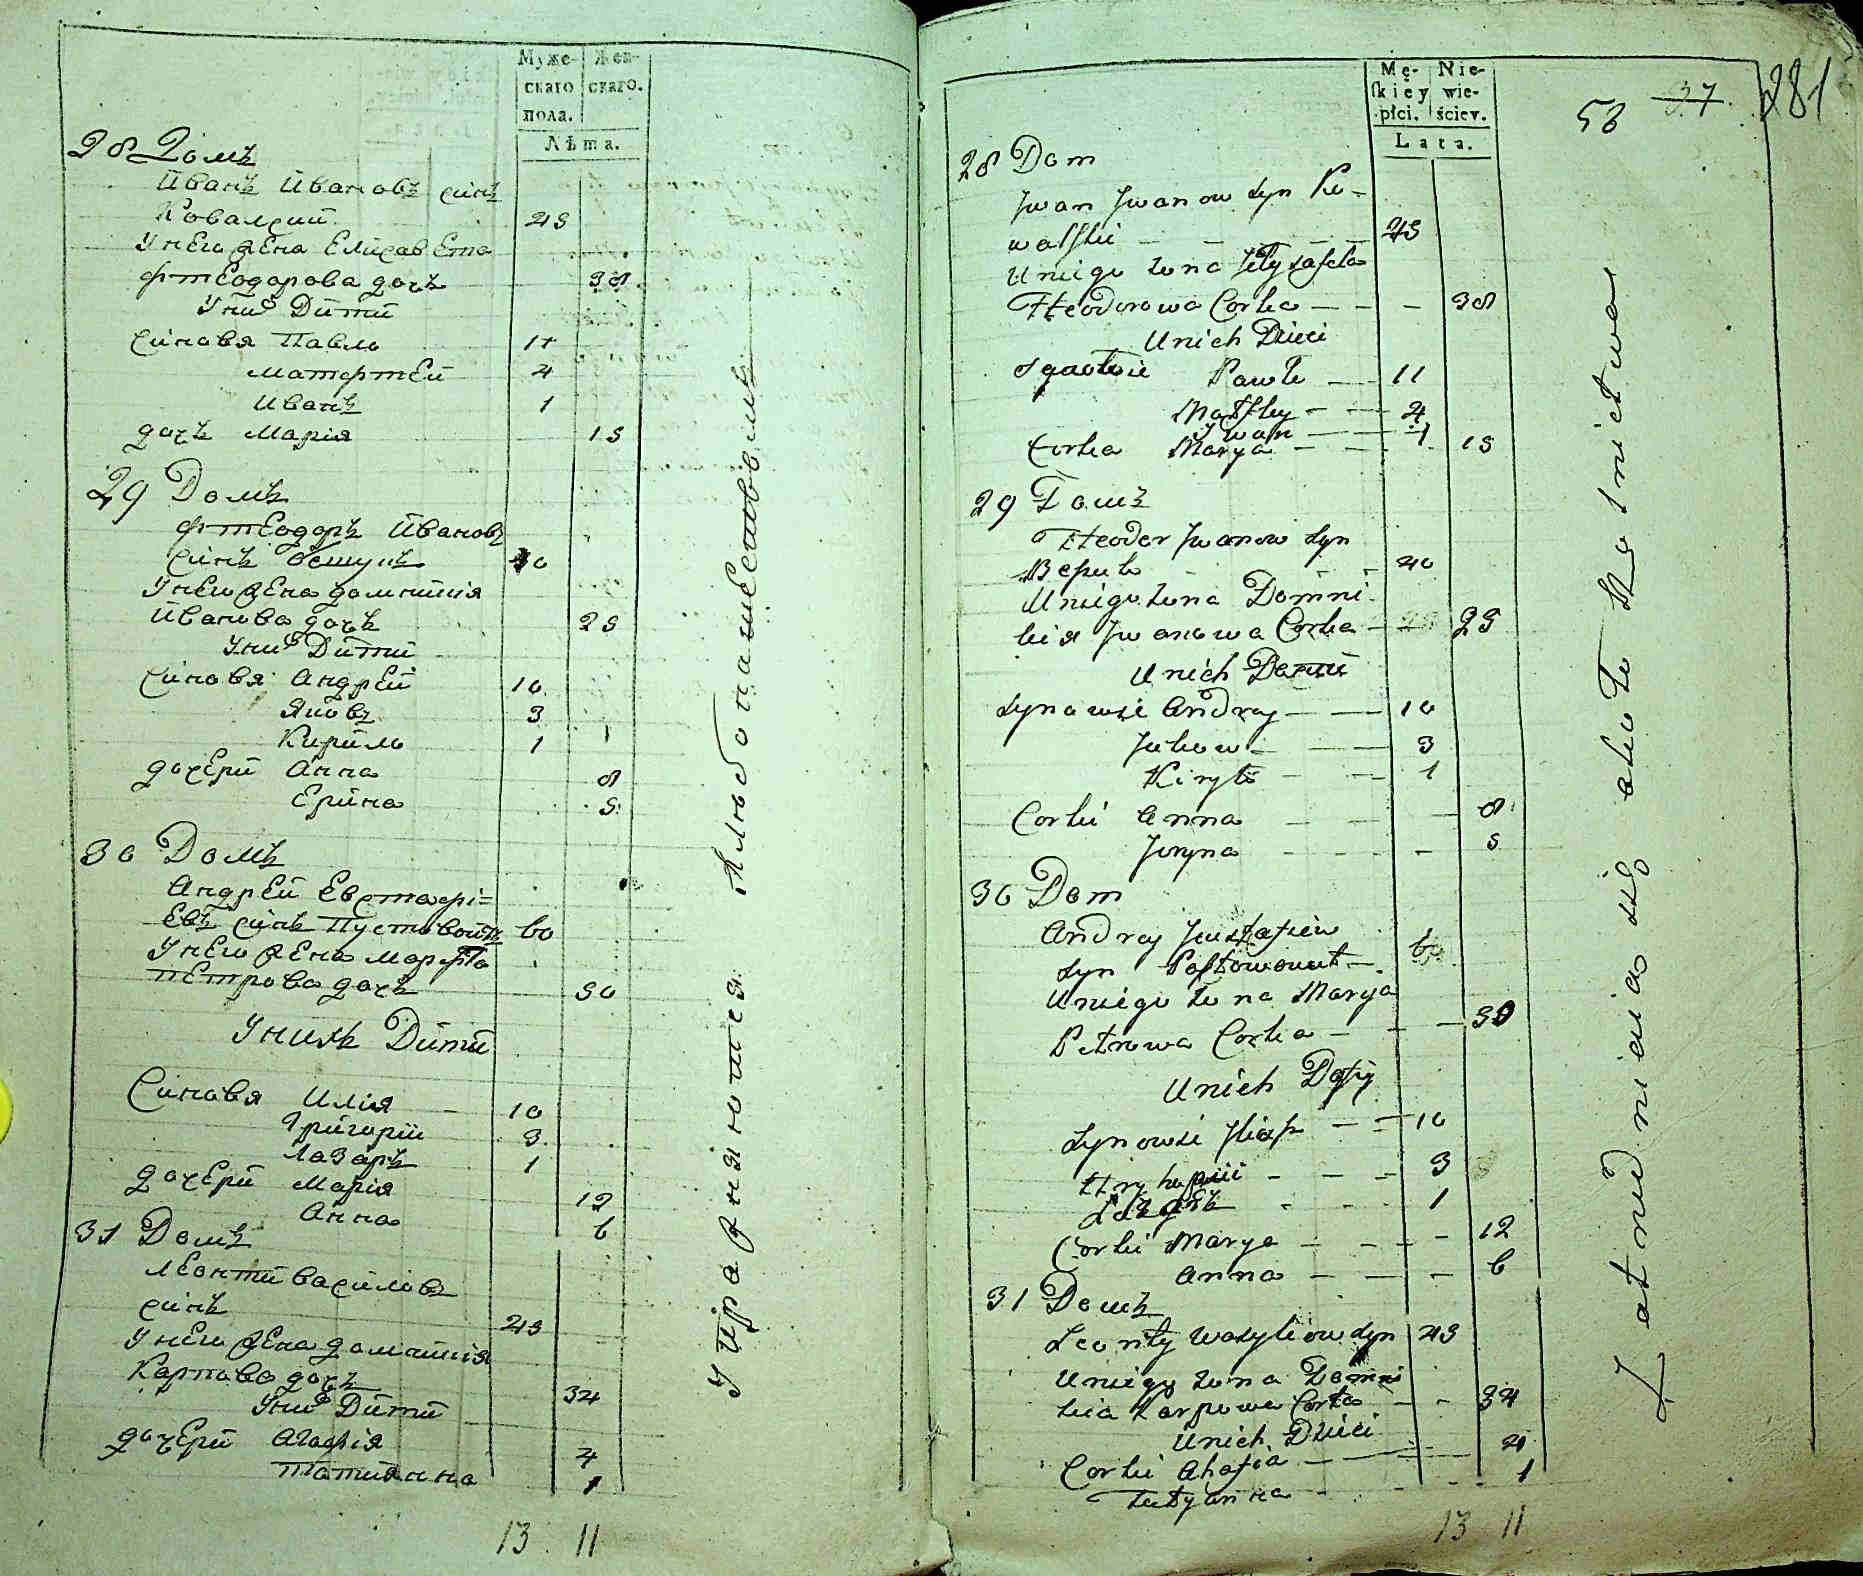 Муже-
скаго
пола.
Жен-
скаго.
Лѣта.
28 Домъ
Иванъ Ивановъ синъ
Ковалский 45
У него жена Елисавета
Фтеодорова дочъ 38
У них Дити
Синовя Павло 11
Матфтей 4
Иванъ 1
дочъ Марія 15
29 Домъ
Фтеодоръ Ивановъ
Синъ 40
У него жена Домникия
Иванова дочъ 25
У них Дити
Синовя Андрей 10
Яковъ 3
Кирило 1
дочери Анна 8
Ерина 5
30 Домъ
Андрей Евстафі=
евъ синъ Пустовойтъ 60
У него жена Марфта
Петрова дочъ 50
У нихъ Дити
Синовя Илія 10
Григорий 3
Лазаръ 1
дочери Марія 12
Анна 6
31 Домъ
Леонтий Василовъ
синъ 45
У него жена Домникия
Карпова дочъ 34
У них Дити
дочери Агафія 4
Татиянна 1
13 11
Упражняются Хлѣбопашествомъ
Mę-
skiey
płci.
Nie-
wie-
ściey.
Lata.
53 37. 281
28 Dom
Jwan Jwanow Syn Ko-
walski 45
Uniego żona Jelyzafeta
Fteodorowa Corka 38
Unich Dzieci
Pawło 11
Matfhey 4
Jwan 1
Corka Marya 15
29 Домъ
Fteodor Jwanow Syn
40
Uniego żona Domni-
kia Jwanowa Corka 25
Unich
Synowie Andrey 10
Jakow 3
Kiryło 1
Corki Anna 8
Jeryna 5
30 Dom
Andrey Jewstafiew
Syn 60
Uniego żona Marya
Petrowa Corka 50
Unich
Synowie 10
3
1
Corki Marya 12
Anna 6
31 Домъ
Leonty Wasyliow Syn 45
Uniego żona Domni
kia Karpowa Corka 34
Unich Dzieci
Corki Ahafia 4
Tatyanna 1
13 11
Zatrudniaia się około Rolnictwa